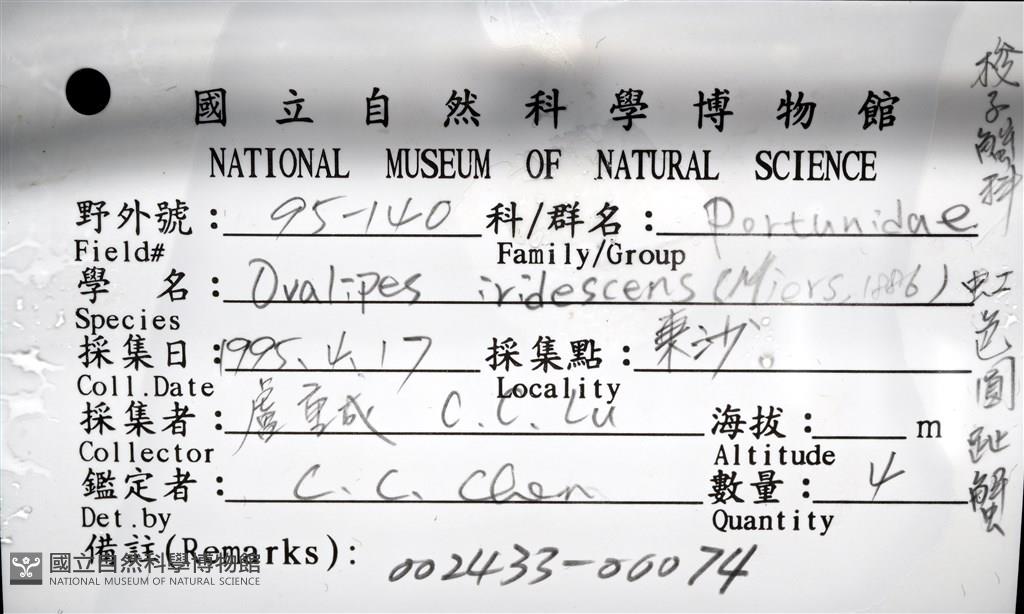 國立自然科學博物館
NATIONAL MUSEUM OF NATURAL SCIENCE
野外號：95-140 科/群名：Portunidae
Field# Family/Group
學名：Ovalipes iridescens (Miers, 1886)
Species
採集日：1995.4.17 採集點：東沙
Coll.Date Locality
採集者：盧重成 C.C. Lu 海拔：m
Collector Altitude
鑑定者：C.C. Chen 數量：4
Det.by Quantity
備註(Remarks)：002433-00074
梭子蟹科
虹色圓趾蟹
國立自然科學博物館
NATIONAL MUSEUM OF NATURAL SCIENCE